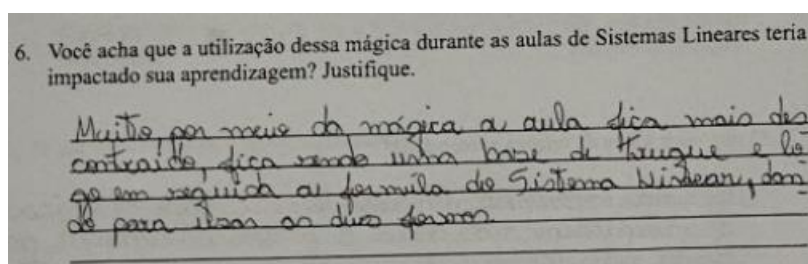 6. Você acha que a utilização dessa mágica durante as aulas de Sistemas Lineares teria
impactado sua aprendizagem? Justifique.
Muito, por meio da mágica a aula fica mais des
contraída, fica sendo uma base de truque e lo
go em seguida a formula do Sistema Lindeary, dan
do para usar as duas formas.